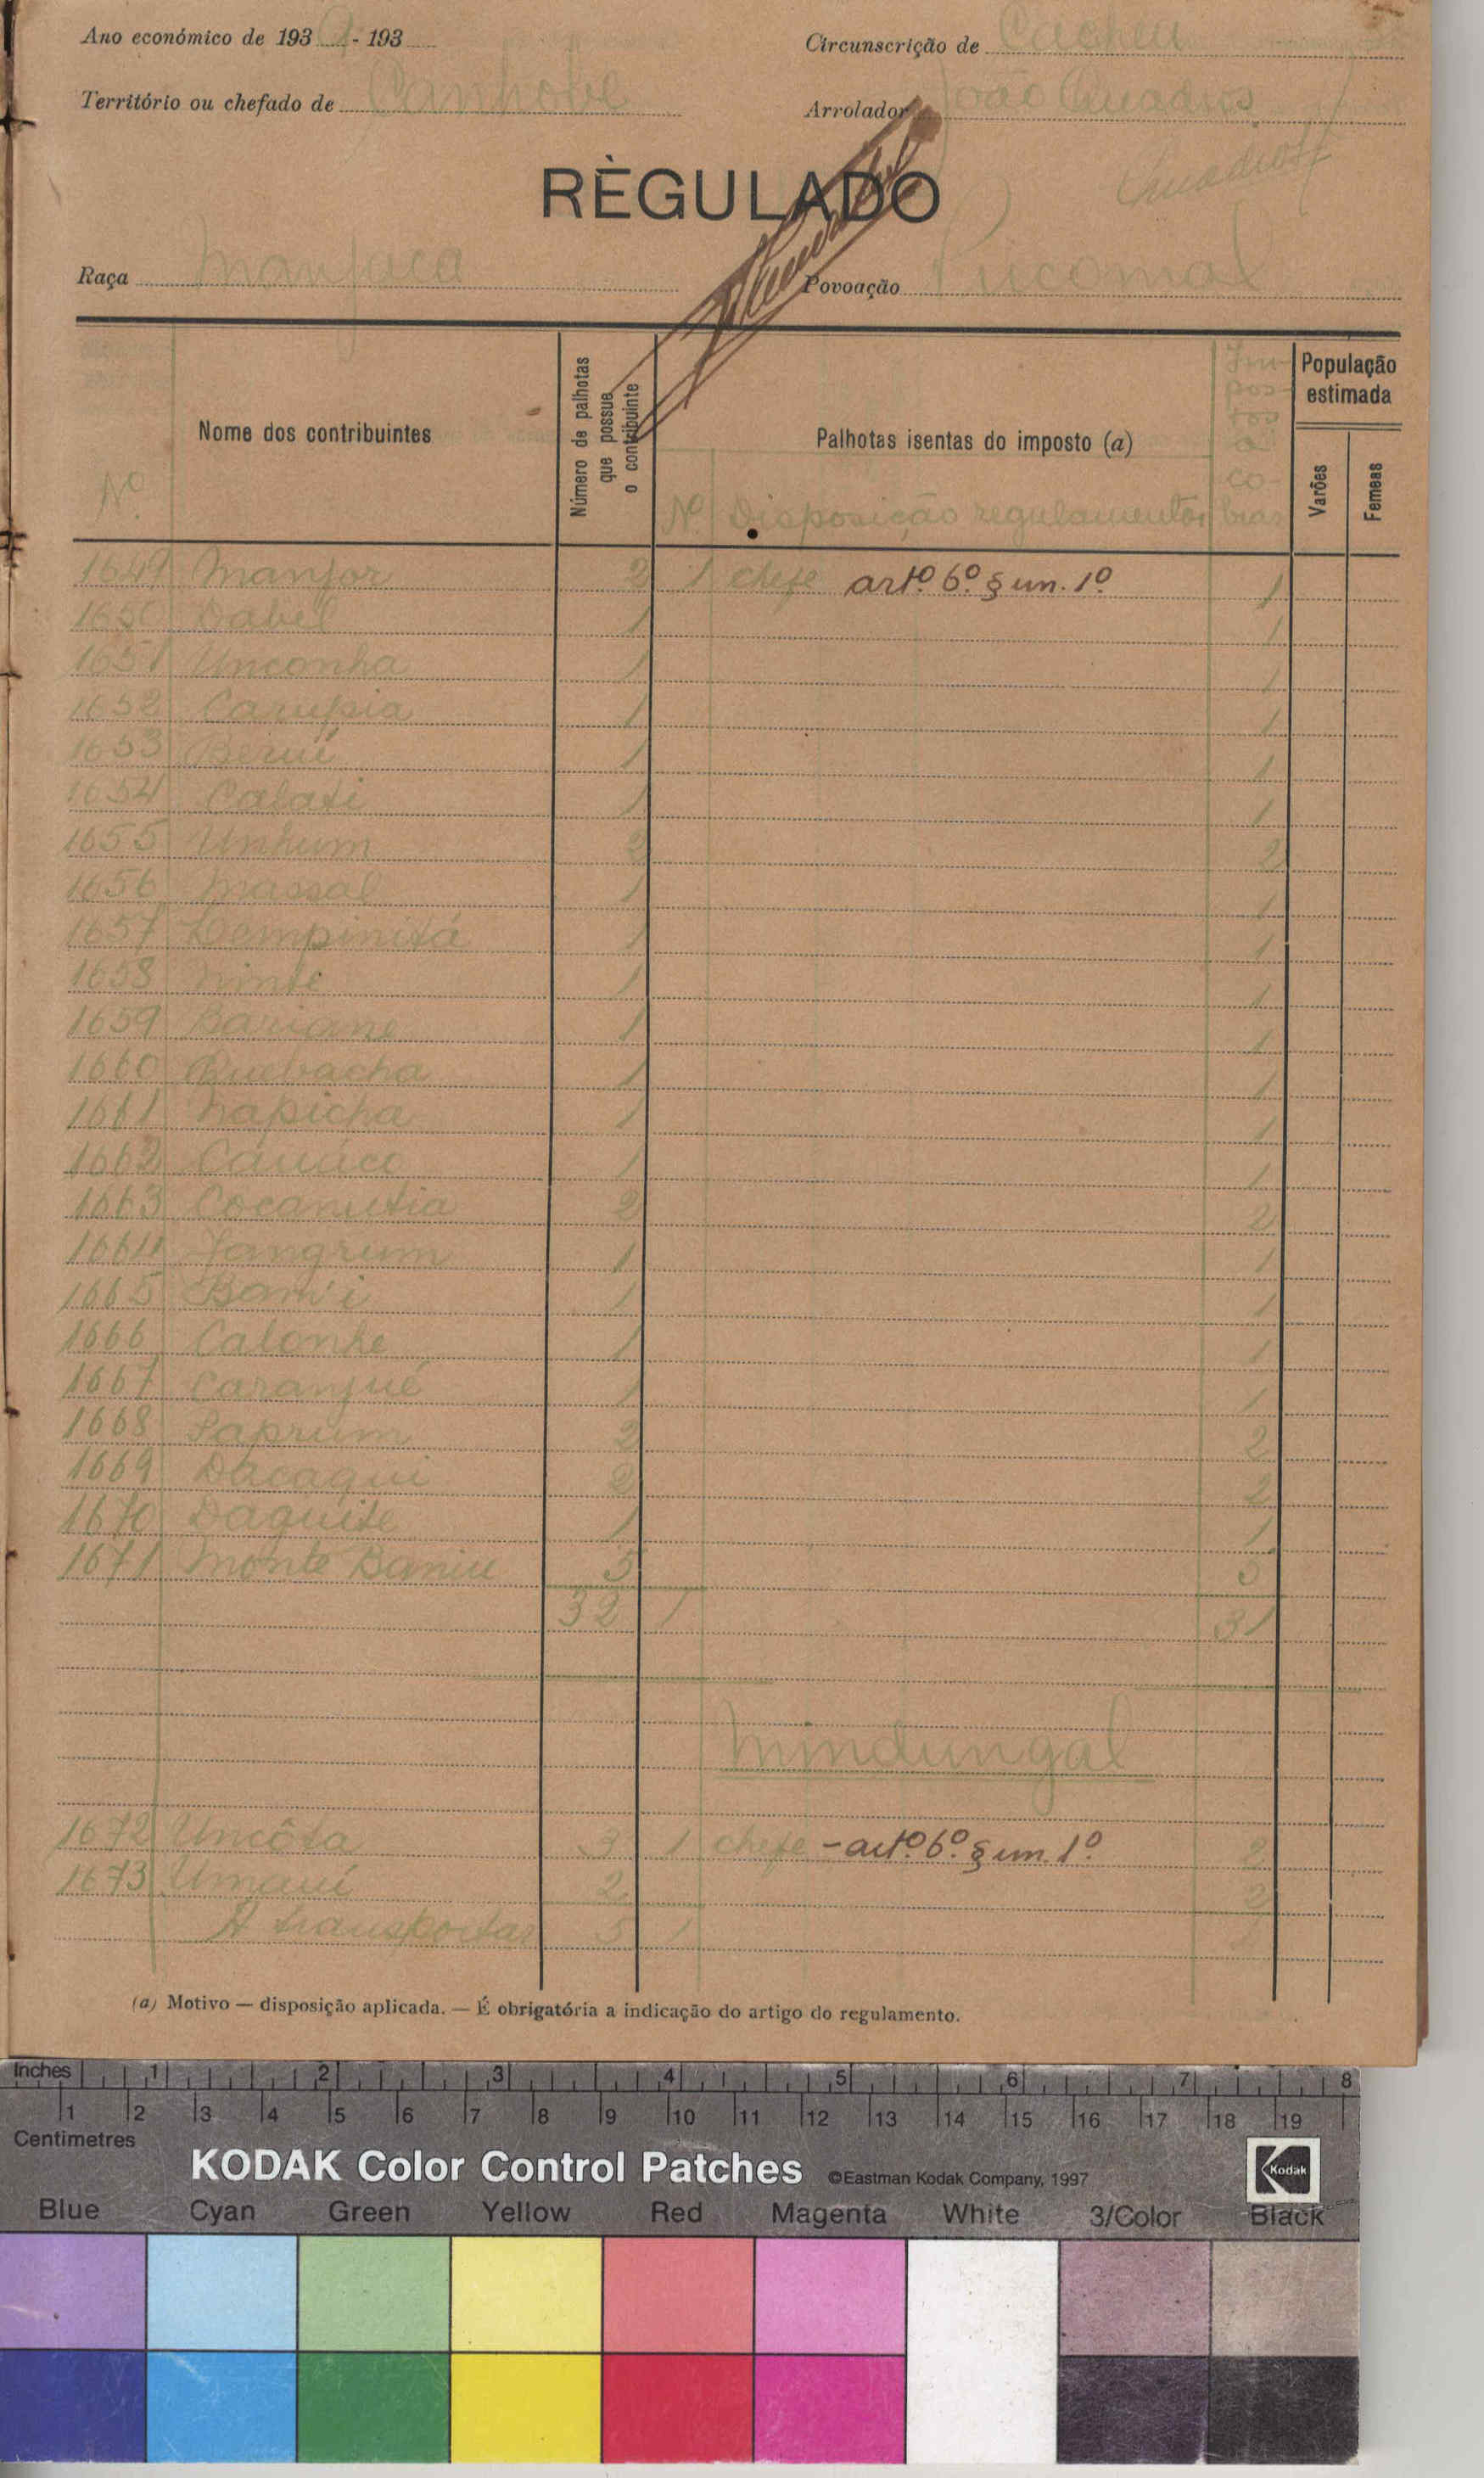 Ano económico de 193 - 193
Circunscrição de Cacheu
Território ou chefado de Canhobe
Arrolador João Quadros
Quadros
RÈGULADO
Raça Manjaca
Povoação Pucomal
Nº
Nome dos contribuintes
Número de palhotas que possue o contribuinte
Palhotas isentas do imposto (a)
Nº Disposição regulamentar
Impostos a cobrar
População estimada
Varões
Femeas
1649 Manjor 2 1 chefe artº 6º § un. 1º 1
1650 Dabel 1 1
1651 Unconha 1 1
1652 Carupia 1 1
1653 Berué 1 1
1654 Calati 1 1
1655 Unhum 2 2
1656 Massal 1 1
1657 Lempinitá 1 1
1658 1 1
1659 1 1
1660 Quebacha 1 1
1661 Napicha 1 1
1662 Cauáco 1 1
1663 Cocanutia 2 2
1664 Jangrum 1 1
1665 1 1
1666 Calonhe 1 1
1667 Caranjué 1 1
1668 Saprum 2 2
1669 Dacaqui 2 2
1670 Daquite 1 1
1671 Monte Baniu 5 5
32 1 31
Mindungal
1672 Uncôta 3 1 chefe - artº 6º § un. 1º 2
1673 Umaui 2 2
A transportar 5 1
(a) Motivo — disposição aplicada. — É obrigatória a indicação do artigo do regulamento.
Inches 1 2 3 4 5 6 7 8
1 2 3 4 5 6 7 8 9 10 11 12 13 14 15 16 17 18 19
Centimetres
KODAK Color Control Patches ©Eastman Kodak Company, 1997 Kodak
Blue Cyan Green Yellow Red Magenta White 3/Color Black